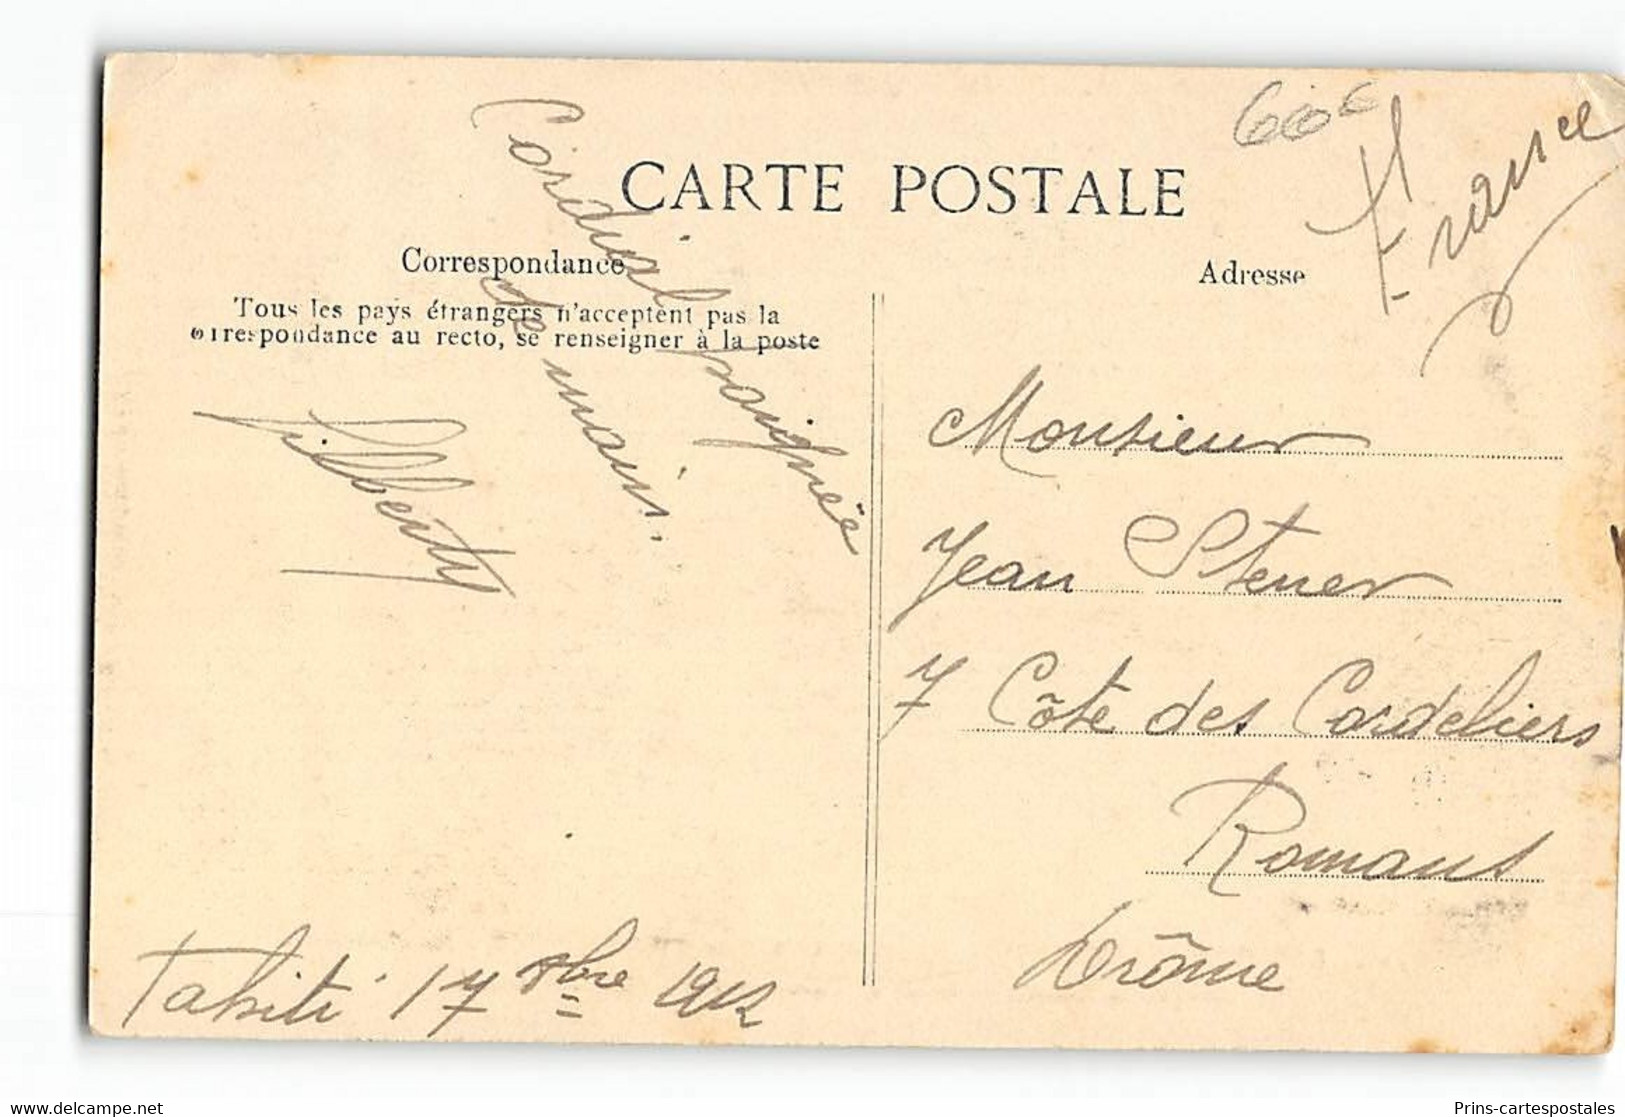 60€
France
CARTE POSTALE
Correspondance
Adresse
Tous les pays étrangers n'acceptent pas la
orrespondance au recto, se renseigner à la poste
Cordial poignée
de main.
Monsieur
Jean Stener
7 Côte des Cordeliers
Romans
Drôme
Tahiti 17 8bre 1912
delcampe.net
Prins-cartespostales